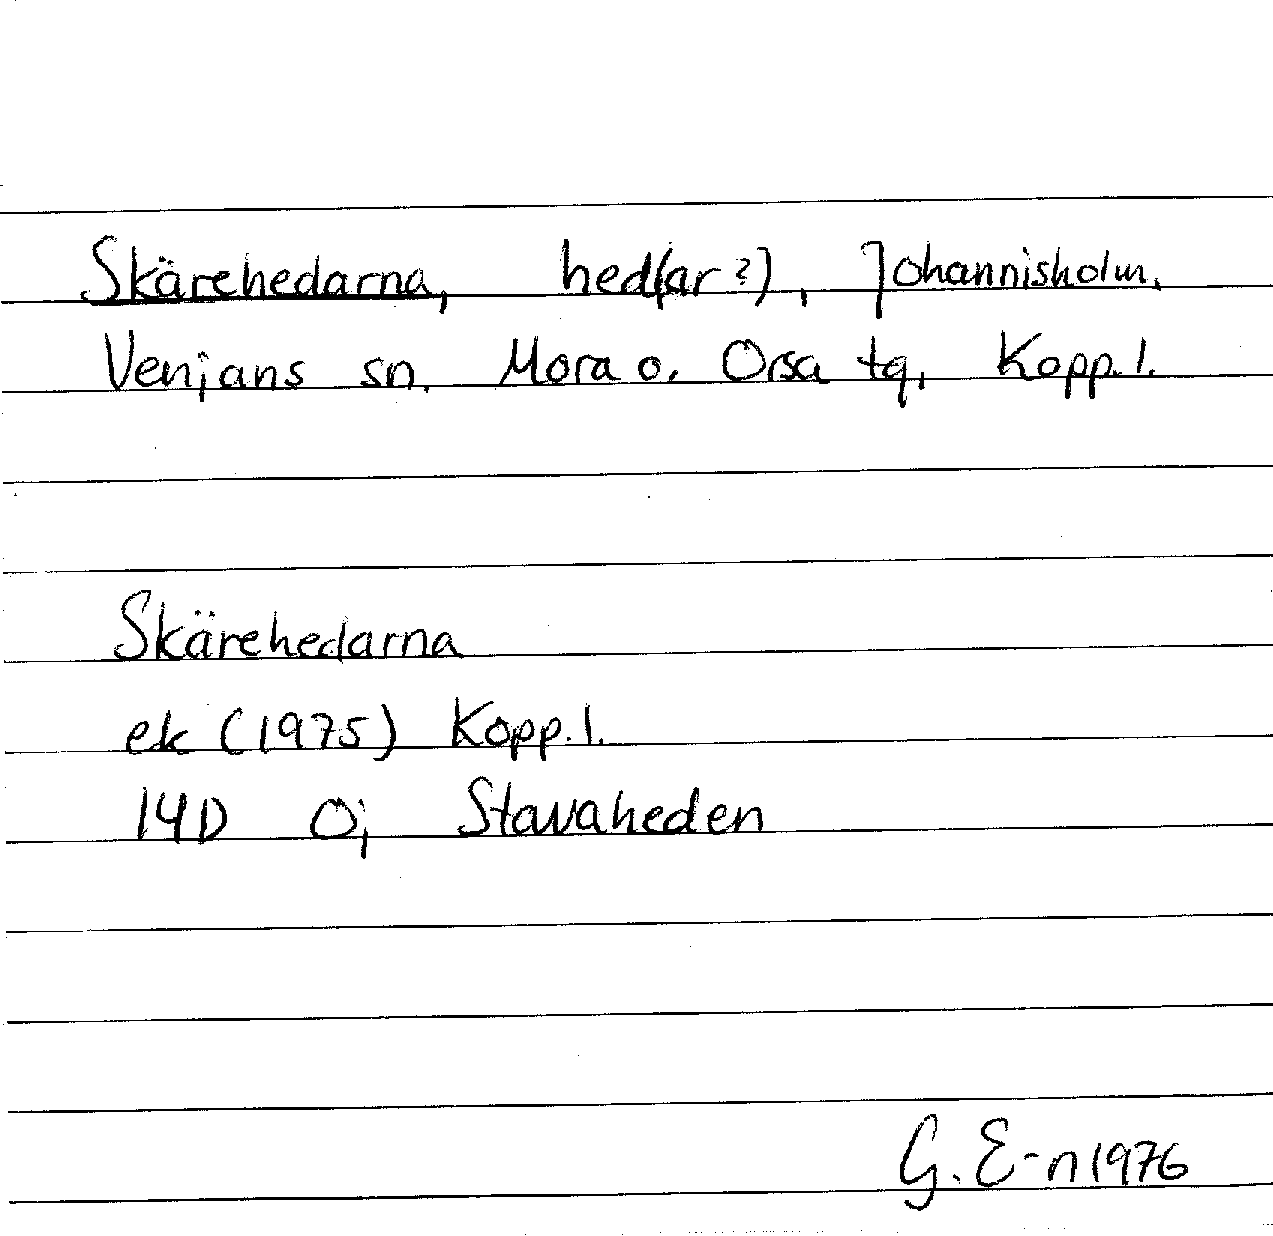 Skärehedarna, hed(ar?), Johannisholm,
Venjans sn. Mora o. Orsa tg, Kopp. l.
Skärehedarna
ek (1975) Kopp. l.
14D 0j Stavaheden
G. E-n 1976